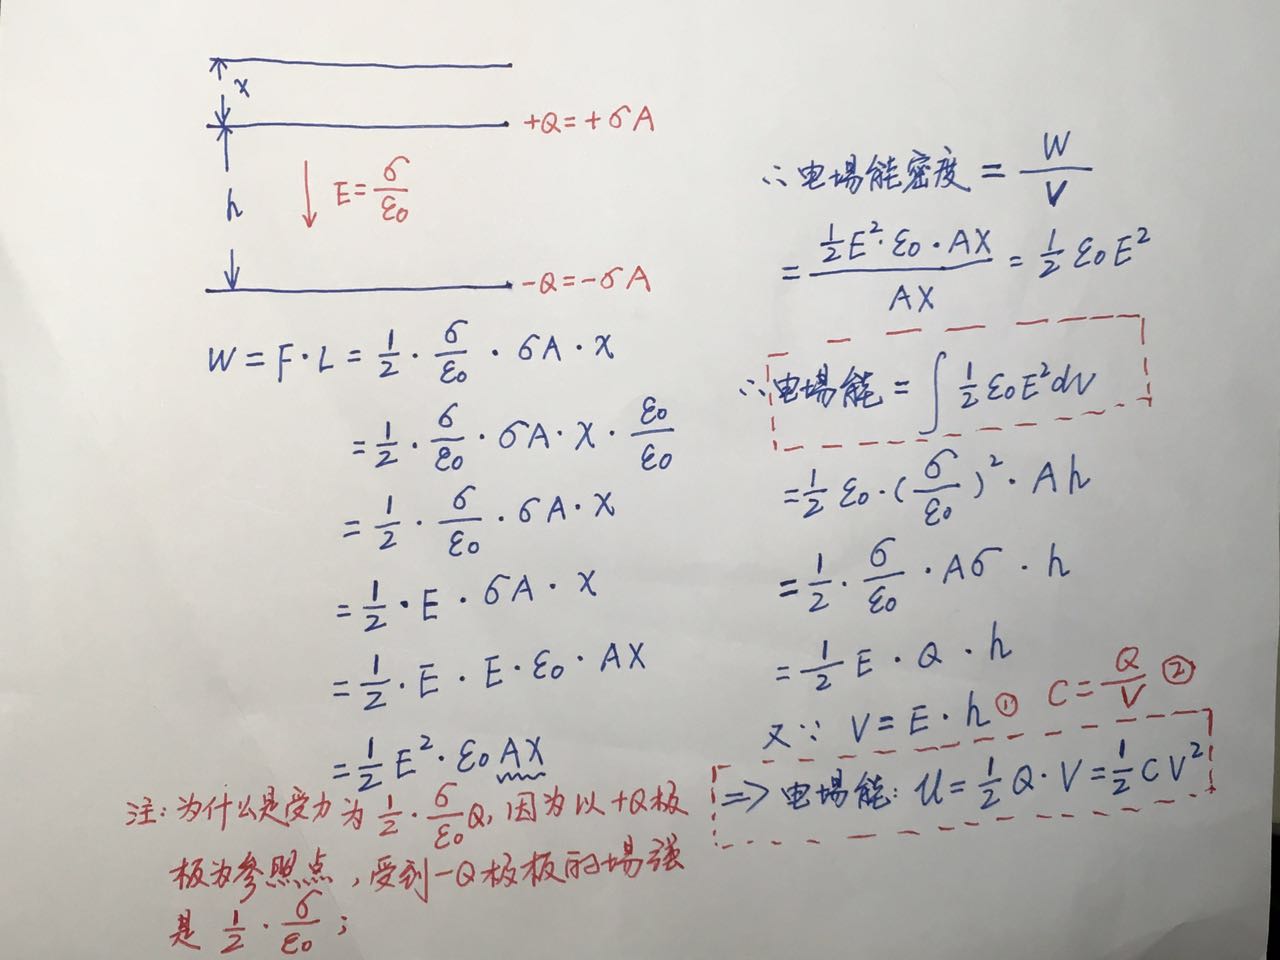 x
+Q=+σA
h
E=σ/ε₀
-Q=-σA
W=F·L=1/2·σ/ε₀·σA·x
=1/2·σ/ε₀·σA·x·ε₀/ε₀
=1/2·σ/ε₀·σA·x
=1/2·E·σA·x
=1/2·E·E·ε₀·AX
=1/2E²·ε₀AX
注:为什么是受力为1/2·σ/ε₀Q,因为以+Q极
板为参照点,受到-Q极板的場强
是1/2·σ/ε₀;
∴电場能密度=W/V
=1/2E²·ε₀·AX/AX=1/2ε₀E²
∴电場能=∫1/2ε₀E²dv
=1/2ε₀·(σ/ε₀)²·Ah
=1/2·σ/ε₀·Aσ·h
=1/2E·Q·h
又∵V=E·h① C=Q/V②
=>电場能:U=1/2Q·V=1/2CV²